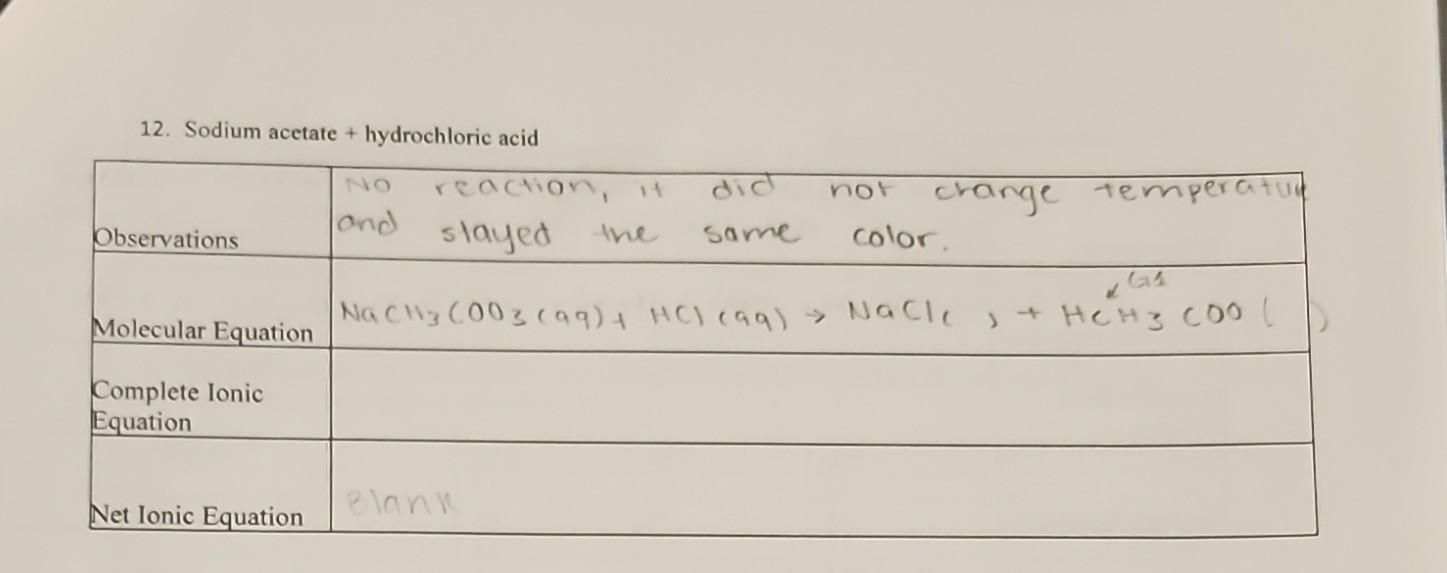 12. Sodium acetate + hydrochloric acid
Observations
No reaction, it did not change temperatur
and stayed the same color.
Molecular Equation
NaCH3COO3(aq) + HCl(aq) → NaCl( ) + HCH3COO( )
Complete Ionic
Equation
Net Ionic Equation
Blank